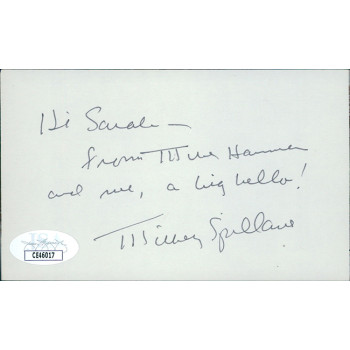 Hi Sarah –
from Mike Hammer
and me, a big hello!
Mickey Spillane
JSA
CE46017